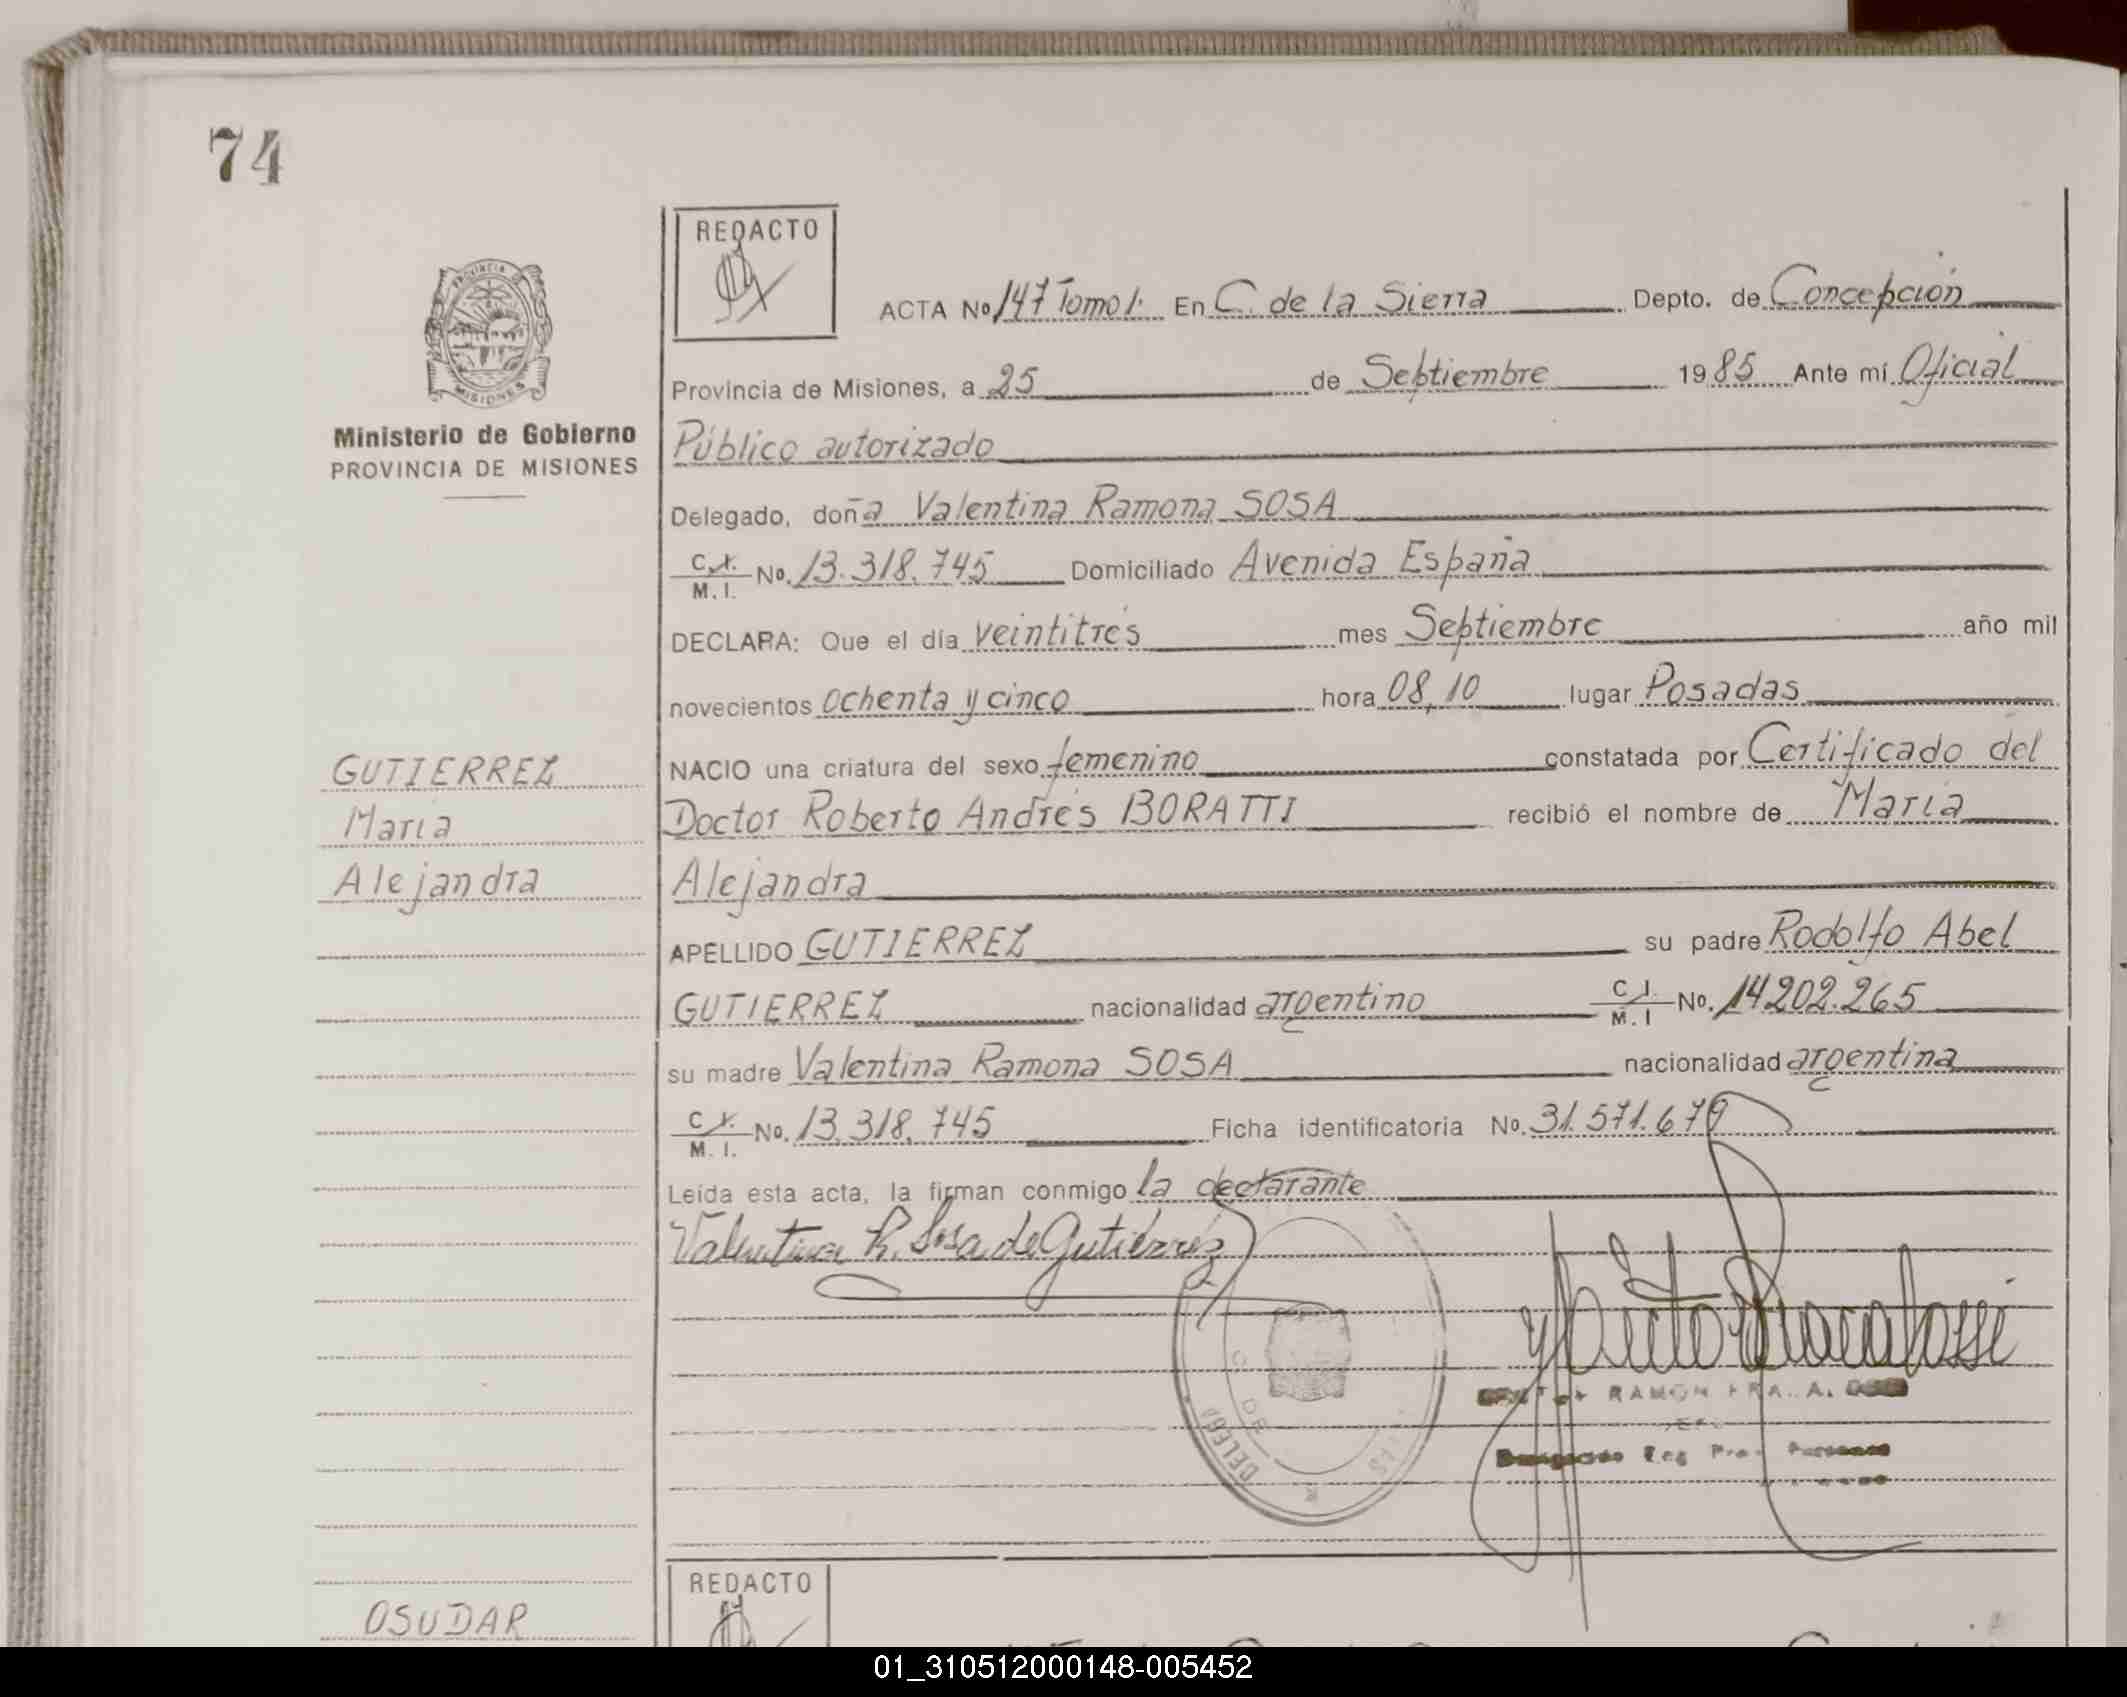 74
REDACTO
ACTA No 147 Tomo I. En C. de la Sierra Depto. de Concepción
Provincia de Misiones, a 25 de Septiembre 1985 Ante mí Oficial
PROVINCIA DE
MISIONES
Ministerio de Gobierno
PROVINCIA DE MISIONES
Público autorizado
Delegado, doña Valentina Ramona SOSA
C.I. M.I. No. 13.318.745 Domiciliado Avenida España
DECLARA: Que el día veintitrés mes Septiembre año mil
novecientos ochenta y cinco hora 08,10 lugar Posadas
GUTIERREZ
María
Alejandra
NACIO una criatura del sexo femenino constatada por Certificado del
Doctor Roberto Andrés BORATTI recibió el nombre de María
Alejandra
APELLIDO GUTIERREZ su padre Rodolfo Abel
GUTIERREZ nacionalidad argentino C.I. M.I No. 14202.265
su madre Valentina Ramona SOSA nacionalidad argentina
C.I. M.I. No. 13.318.745 Ficha identificatoria No. 31.571.679
Leída esta acta, la firman conmigo la declarante
Valentina R. Sosa de Gutiérrez
RAMON
DE
REDACTO
OSUDAR
01_310512000148-005452